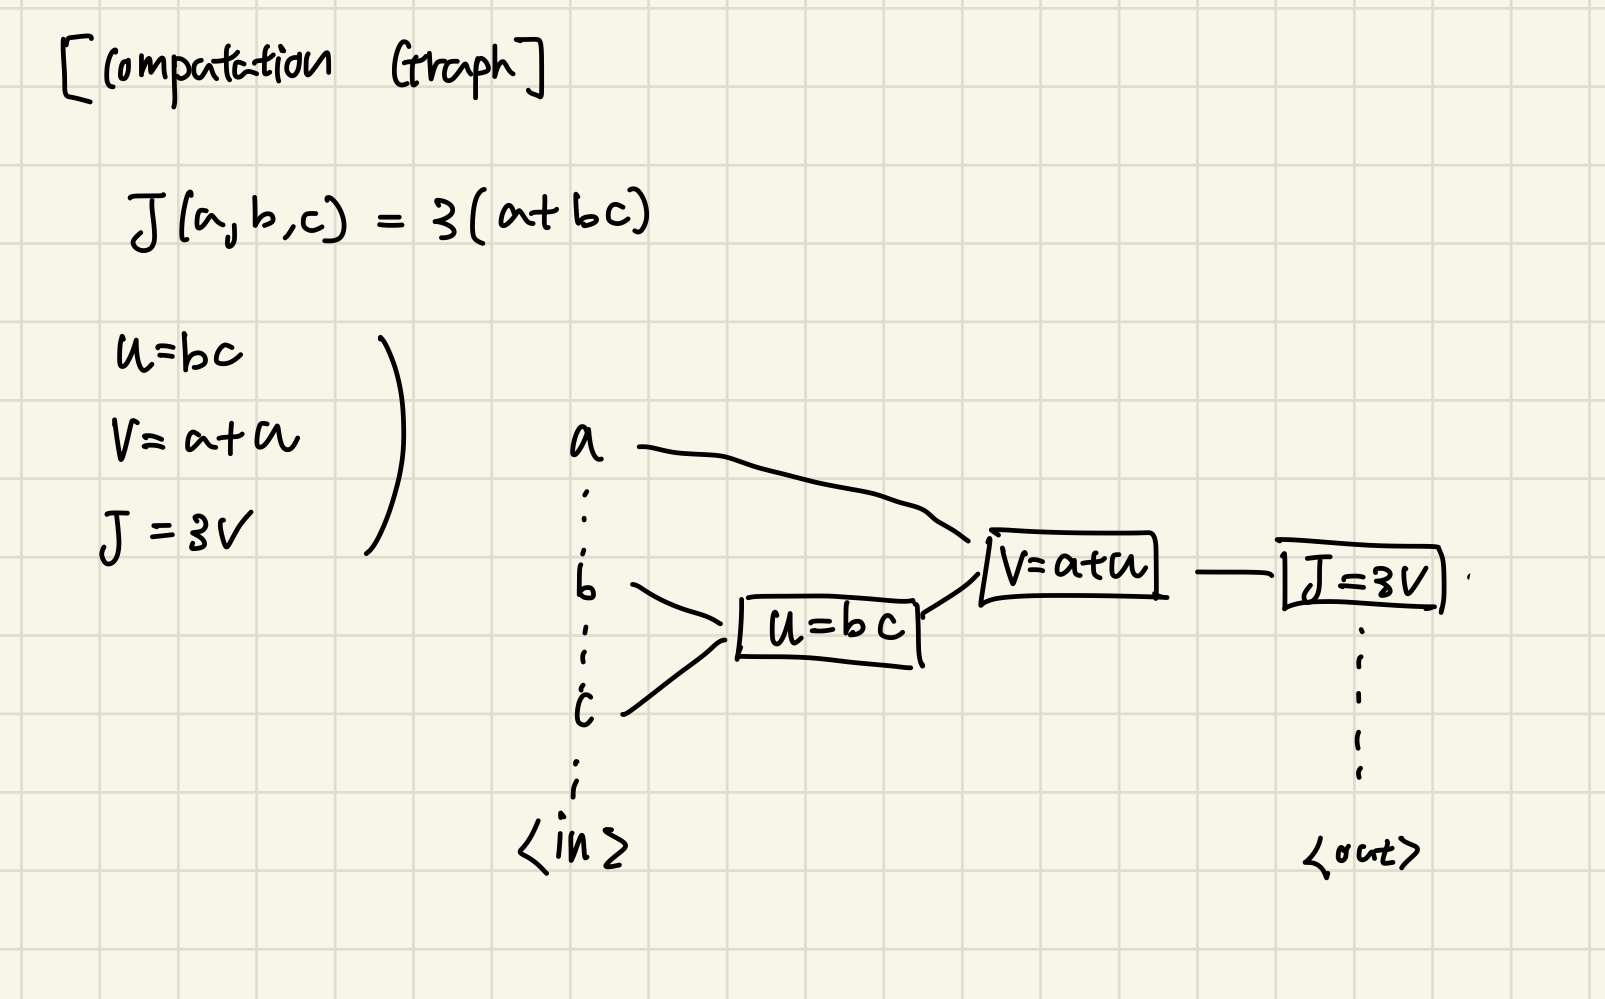 [Computation Graph]
J(a,b,c) = 3(a+bc)
u=bc
V=a+u
J=3V
a
b
c
u=bc
V=a+u
J=3V
<in>
<out>